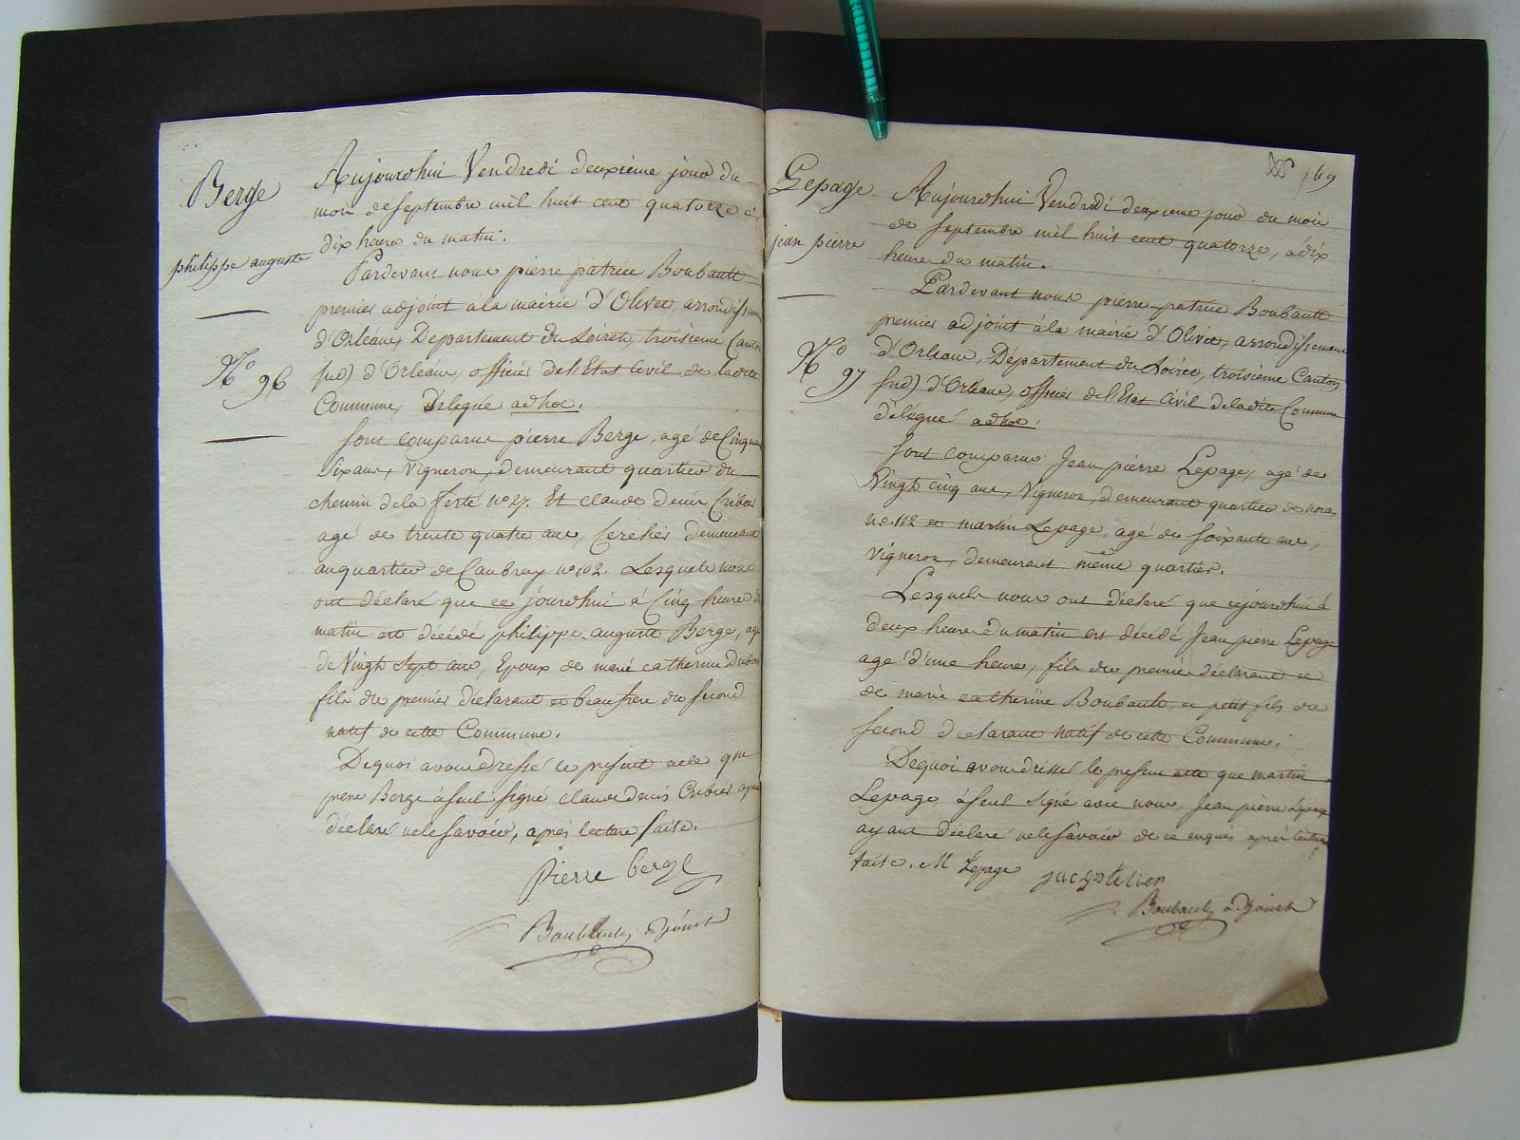 Berge
philippe auguste
N.o 96
Aujourdhui Vendredi deuxième jour du
mois de septembre mil huit cent quatorze à
dix heures du matin.
Pardevant nous pierre patrice Boubault
premier adjoint à la mairie d'Olivet, arrondissem
d'Orléans, Departement du Loiret, troisieme Canton
sud) d'Orléans, officier de l'Etat Civil de ladite
Commune, Délégué adhoc.
Sont comparus pierre Berge, agé de Cinquante
Six ans, Vigneron, demeurant quartier du
chemin de la ferté no 27. Et claude denis
agé de trente quatre ans, demeurant
au quartier de Caubray no 102. Lesquels nous
ont déclaré que ce jourdhui à Cinq heures du
matin est décédé philippe auguste Berge, agé
de Vingt Sept ans, Epoux de marie catherine
fils du premier declarant et beau frère du second
natif de cette Commune.
De quoi avons dressé le présent acte que
pierre Berge à seul signé claude denis ayant
déclaré ne le savoir, après lecture faite.
pierre berge
Boubault adjoint
169
Lepage
jean pierre
N.o 97
Aujourdhui Vendredi deuxieme jour du mois
de septembre mil huit cent quatorze, à dix
heures du matin.
Pardevant nous pierre patrice Boubault
premier adjoint à la mairie d'Olivet, arrondissement
d'Orleans, Département du Loiret, troisième Canton
sud) d'Orleans, officier de l'Etat Civil de la dite Commune
délégué adhoc.
Sont Comparus Jean pierre Lepage, agé de
Vingt cinq ans, Vigneron, demeurant quartier de
no 112 et martin Lepage, agé de soixante ans,
Vigneron, demeurant même quartier.
Lesquels nous ont déclaré que cejourdhui à
deux heures du matin est décédé Jean pierre Lepage
agé d'une heure, fils du premier déclarant et
de marie catherine Boubault, et petit fils du
second declarant natif de cette Commune.
De quoi avons dressé le présent acte que martin
Lepage à seul signé avec nous, Jean pierre Lepage
ayant déclaré ne le savoir de ce enquis après lecture
faite. M Lepage
Boubault adjoint